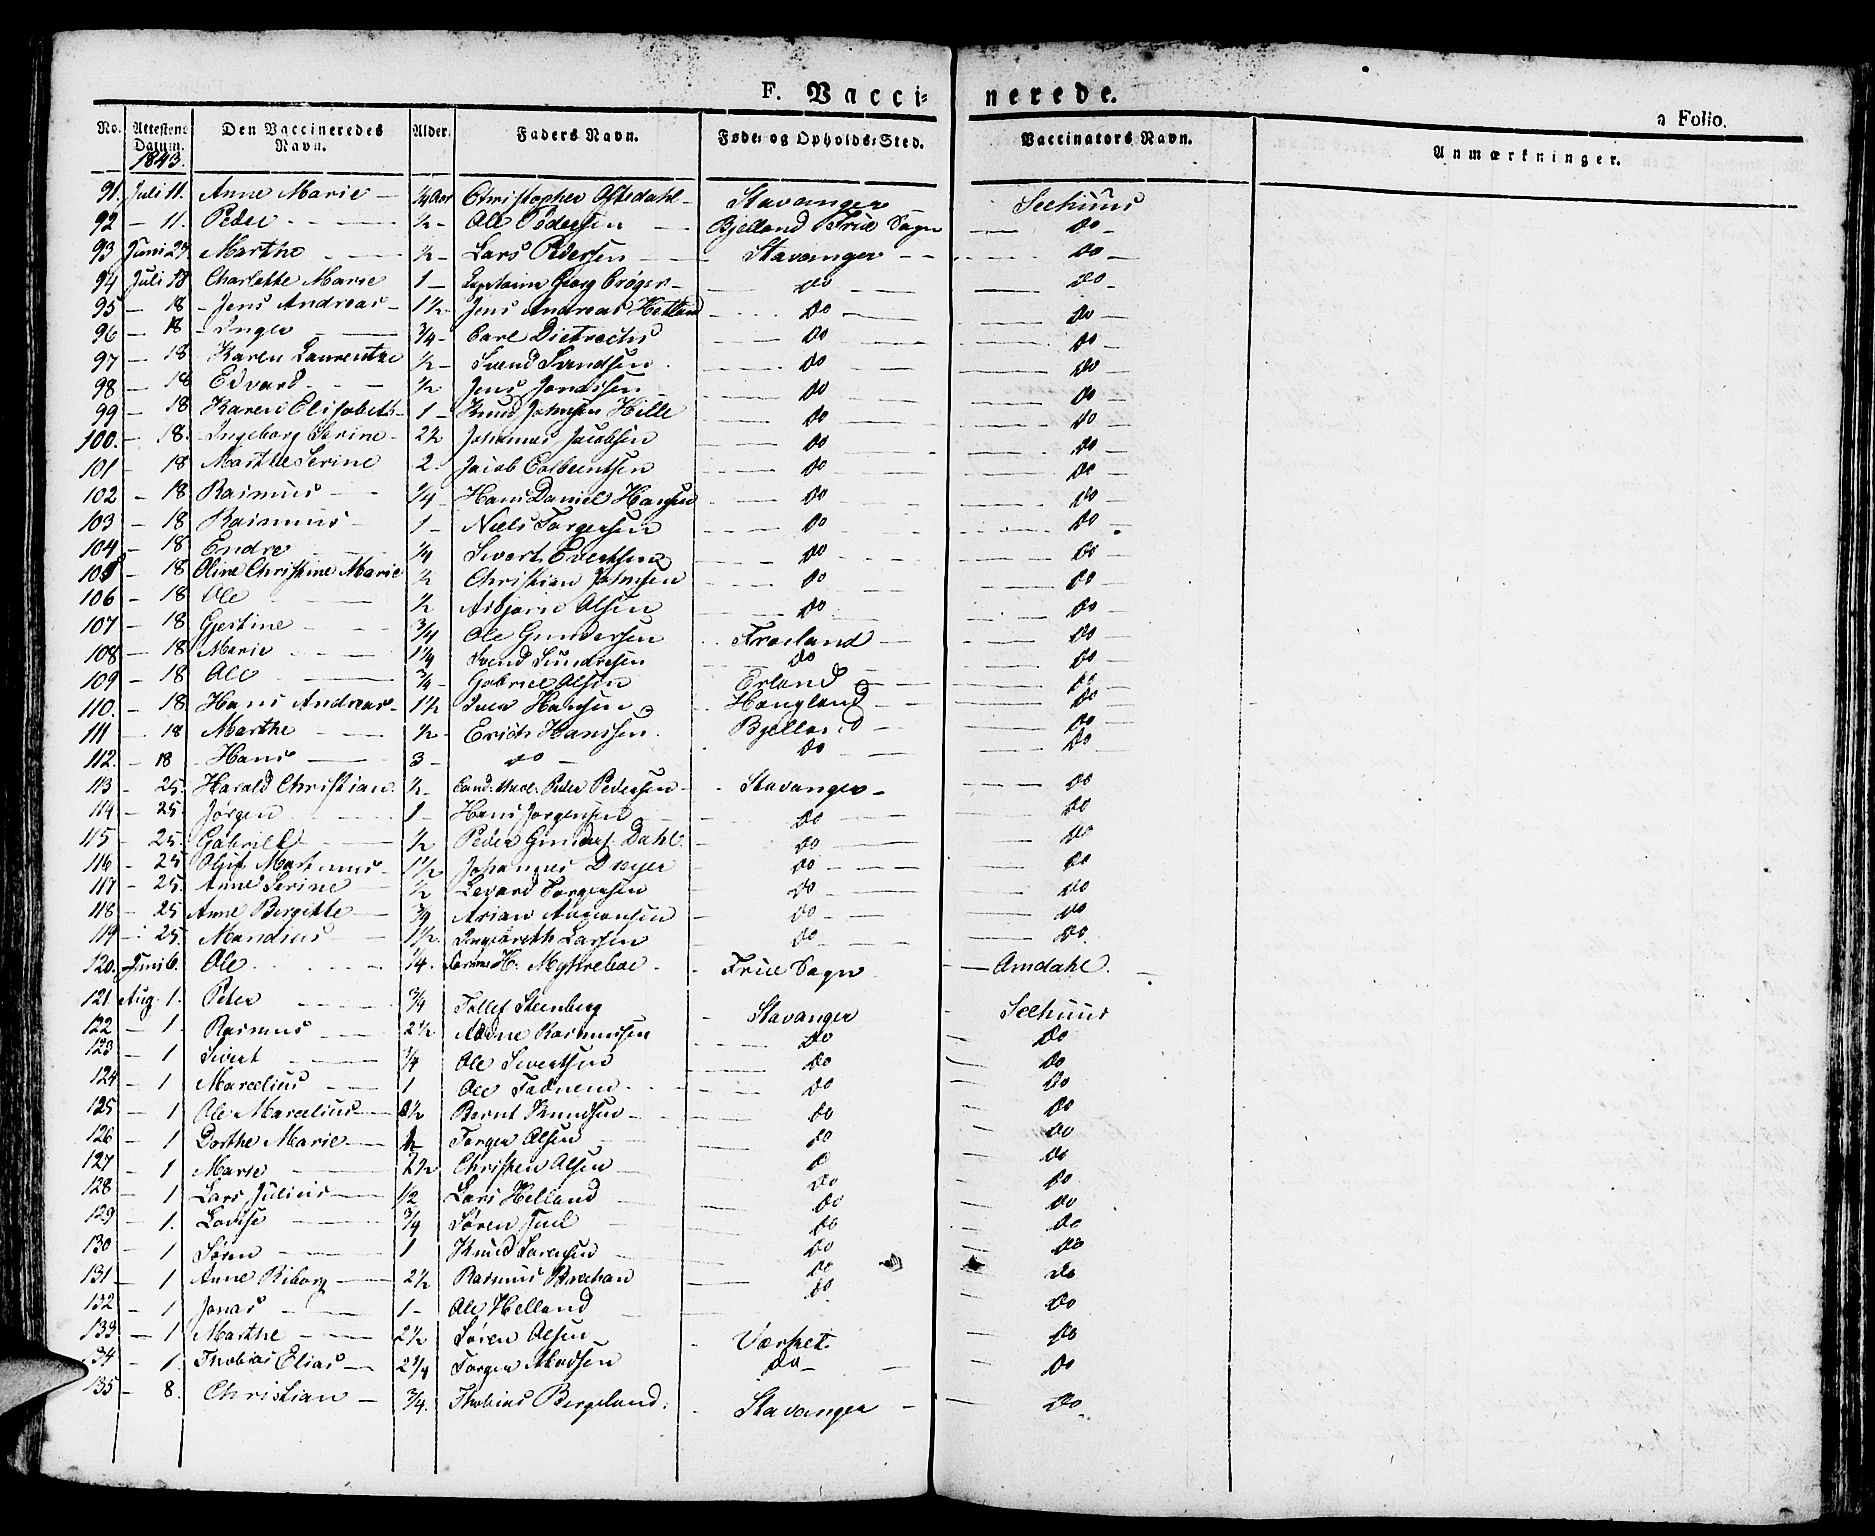 F. Vacci= nerede.
a Folio.
No. Attestens Datum. Den Vaccineredes Navn. Alder. Faders Navn. Føde- og Opholds-Sted. Vaccinators Navn. Anmærkninger.
1843.
91. Juli 11. Anne Marie — 1/4 Aar Christopher Oftedahl - Stavanger Seehuus
92 — 11. Peder ½ - Ole Pedersen — Bjelland Frue Sogn — Do -
93 Juni 27 Marthe ½ - Lars Pedersen — Stavanger — Do —
94 Juli 18 Charlotte Marie 1 — Captain Georg Crøger - Do — Do -
95 - 18 - Jens Andreas - 1½ - Jens Andreas Hetland Do — Do —
96 — 18 - Inger — 3/4 - Carl Dietrichs — Do — Do —
97 — 18 Karen Laurentze ½ - Svend Svendsen Do — Do —
98 — 18 Edvard — ½ Jens Jonassen — Do — Do —
99 — 18 Karen Elisabeth - 1 - Knud Johnsen Hille — Do — Do —
100. - 18. - Ingeborg Serine - 2½ Johannes Jacobsen — Do — Do —
101 - 18 Marthe Serine 2. Jacob Colbentsen — Do — Do —
102 - 18 Rasmus — 1/4 - Hans Daniel Hansen — Do — Do —
103 - 18 Rasmus - 1 - Niels Torgersen — Do — Do —
104 - 18 Endre 1/4 Sivert Evertsen — Do — Do —
105 - 18 Oline Christine Marie ½ Christian Johnsen — Do — Do —
106 - 18 Ole — ½ Asbjørn Olsen — Do — Do —
107 - 18 Gjertine — 3/4 Ole Gundersen Froeland — Do —
108 - 18 Marie — 1 1/4 Svend Sundresen Do — Do —
109 - 18 Ole — 3/4 - Gabriel Olsen Erland — Do —
110. - 18. Hans Andreas - 1½ Iver Hansen Haugland — Do —
111 — 18 Marthe — ½ - Erich Hanssen. Bjelland — Do —
112. - 18 - Hans — 3 - do - Do — Do
113 - 25. Harald Christian. ½ - Cand. theol. Peder Pedersen - Stavanger - Do
114 - 25. Jørgen 1 - Hans Jørgensen Do — Do
115 - 25. Gabriel — ½ Peder Gunders. Dahl. Do — Do
116 - 25 Oluf Martinus - 1½ Johannes Dreyer Do — Do
117 - 25. Anne Serine — ½ Levard Torgersen Do — Do
118 - 25 Anne Bergitte — 3/4 Arian Aasensen — Do — Do
119 - 25. Mandius — 1½ Ingebreth Larsen Do — Do.
120. Juni 6. Ole 1/4. H. Myhreboe Frue Sogn — Amdahl.
121 Aug. 1. Peter 3/4 Tollef Steenberg - Stavanger - Seehuus
122 — 1. Rasmus — 2½ Aadne Rasmussen Do — Do
123 — 1 Sivert — 3/4 Ole Sivertsen Do — Do
124 — 1 Marcelius — 1 Ole Tadnem Do — Do
125 — 1 Ole Marcelius — ½ Bernt Knudsen Do — Do
126 - 1 Dorthe Marie — ½ Torger Olsen — Do — Do
127 - 1 Marie — 2½ Christen Olsen — Do — Do
128 - 1 Lars Julius — ½ Lars Helland — Do — Do
129 - 1. Lovise — 3/4 Søren Juel — Do — Do
130 - 1 Søren — 1 Knud Sørensen — Do — Do
131 - 1 Anne Riborg — 2½ Rasmus Brechan — Do — Do
132 - 1 Jonas — 1 - Ole Helland Do — Do
133 — 1 Marthe — 2½ Søren Olsen — Værket — Do
134 - 1. Thobias Elias — 2 1/4 Torger Madsen Do - Do
135 - 8. Christian — 3/4. Thobias Bergeland. Stavanger — Do